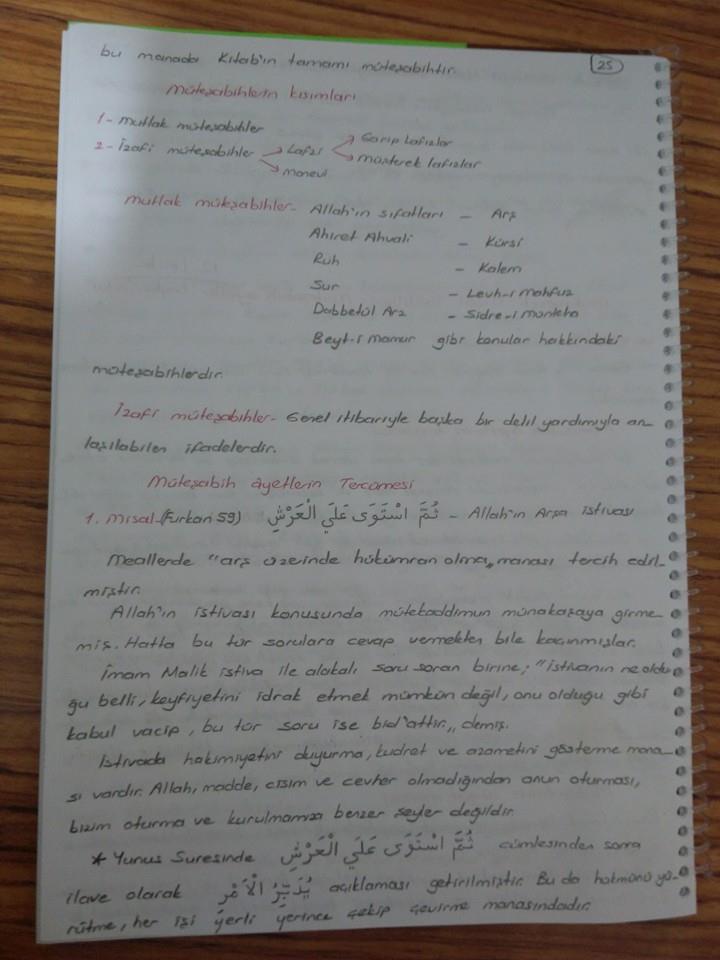 25
bu manada Kitab'ın tamamı müteşabihtir.
Müteşabihlerin kısımları
1- mutlak müteşabihler
2- İzafi müteşabihler → Lafzi → Garip Lafızlar
→ Manevi → müşterek lafızlar
mutlak müteşabihler- Allah'ın sıfatları - Arş
Ahiret Ahvali - Kürsi
Ruh - Kalem
Sur - Levh-i mahfuz
Dabbetül Arz - Sidre-i münteha
Beyt-i mamur gibi konular hakkındaki
müteşabihlerdir.
İzafi müteşabihler- Genel itibariyle başka bir delil yardımıyla an-
laşılabilen ifadelerdir.
Müteşabih âyetlerin Tercümesi
1. misal-(Furkan 59) ثُمَّ اسْتَوَى عَلَي الْعَرْشِ - Allah'ın Arşa istivası
Meallerde "arş üzerinde hükümran olma,, manası tercih edil-
miştir.
Allah'ın istivası konusunda mütekaddimun münakaşaya girme-
miş. Hatta bu tür sorulara cevap vermekten bile kaçınmışlar.
İmam Malik istiva ile alakalı soru soran birine; "istivanın ne oldu
ğu belli, keyfiyetini idrak etmek mümkün değil, onu olduğu gibi
kabul vacip, bu tür soru ise bid'attir,, demiş.
İstivada hakimiyetini duyurma, kudret ve azametini gösterme mana-
sı vardır. Allah, madde, cisim ve cevher olmadığından onun oturması,
bizim oturma ve kurulmamıza benzer şeyler değildir.
* Yunus Suresinde ثُمَّ اسْتَوَى عَلَي الْعَرْشِ cümlesinden sonra
ilave olarak يُدَبِّرُ الْاَمْرَ açıklaması getirilmiştir. Bu da hükmünü yü-
rütme, her işi yerli yerince çekip çevirme manasındadır.